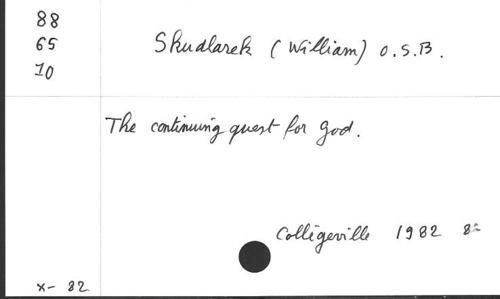 88
65
10
Skudlarek (William) O.S.B.
The continuing quest for God.
Collegeville 1982 8°
X- 82